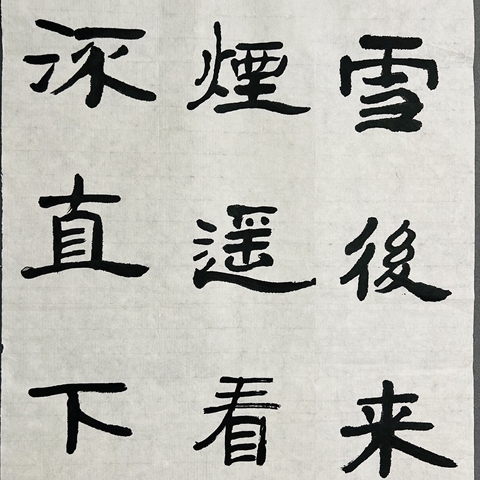 雪後来
煙遥看
㳅直下